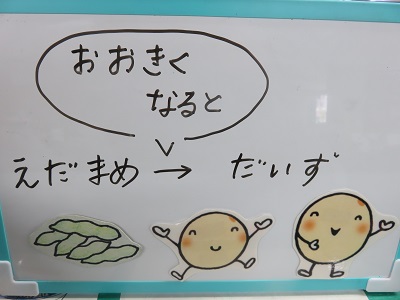 おおきく
なると
えだまめ → だいず